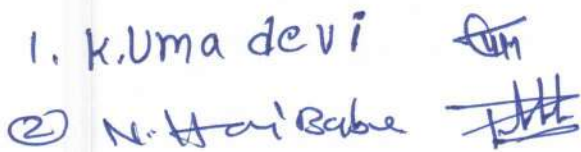 1. K.Uma devi
② N. Hari Babu